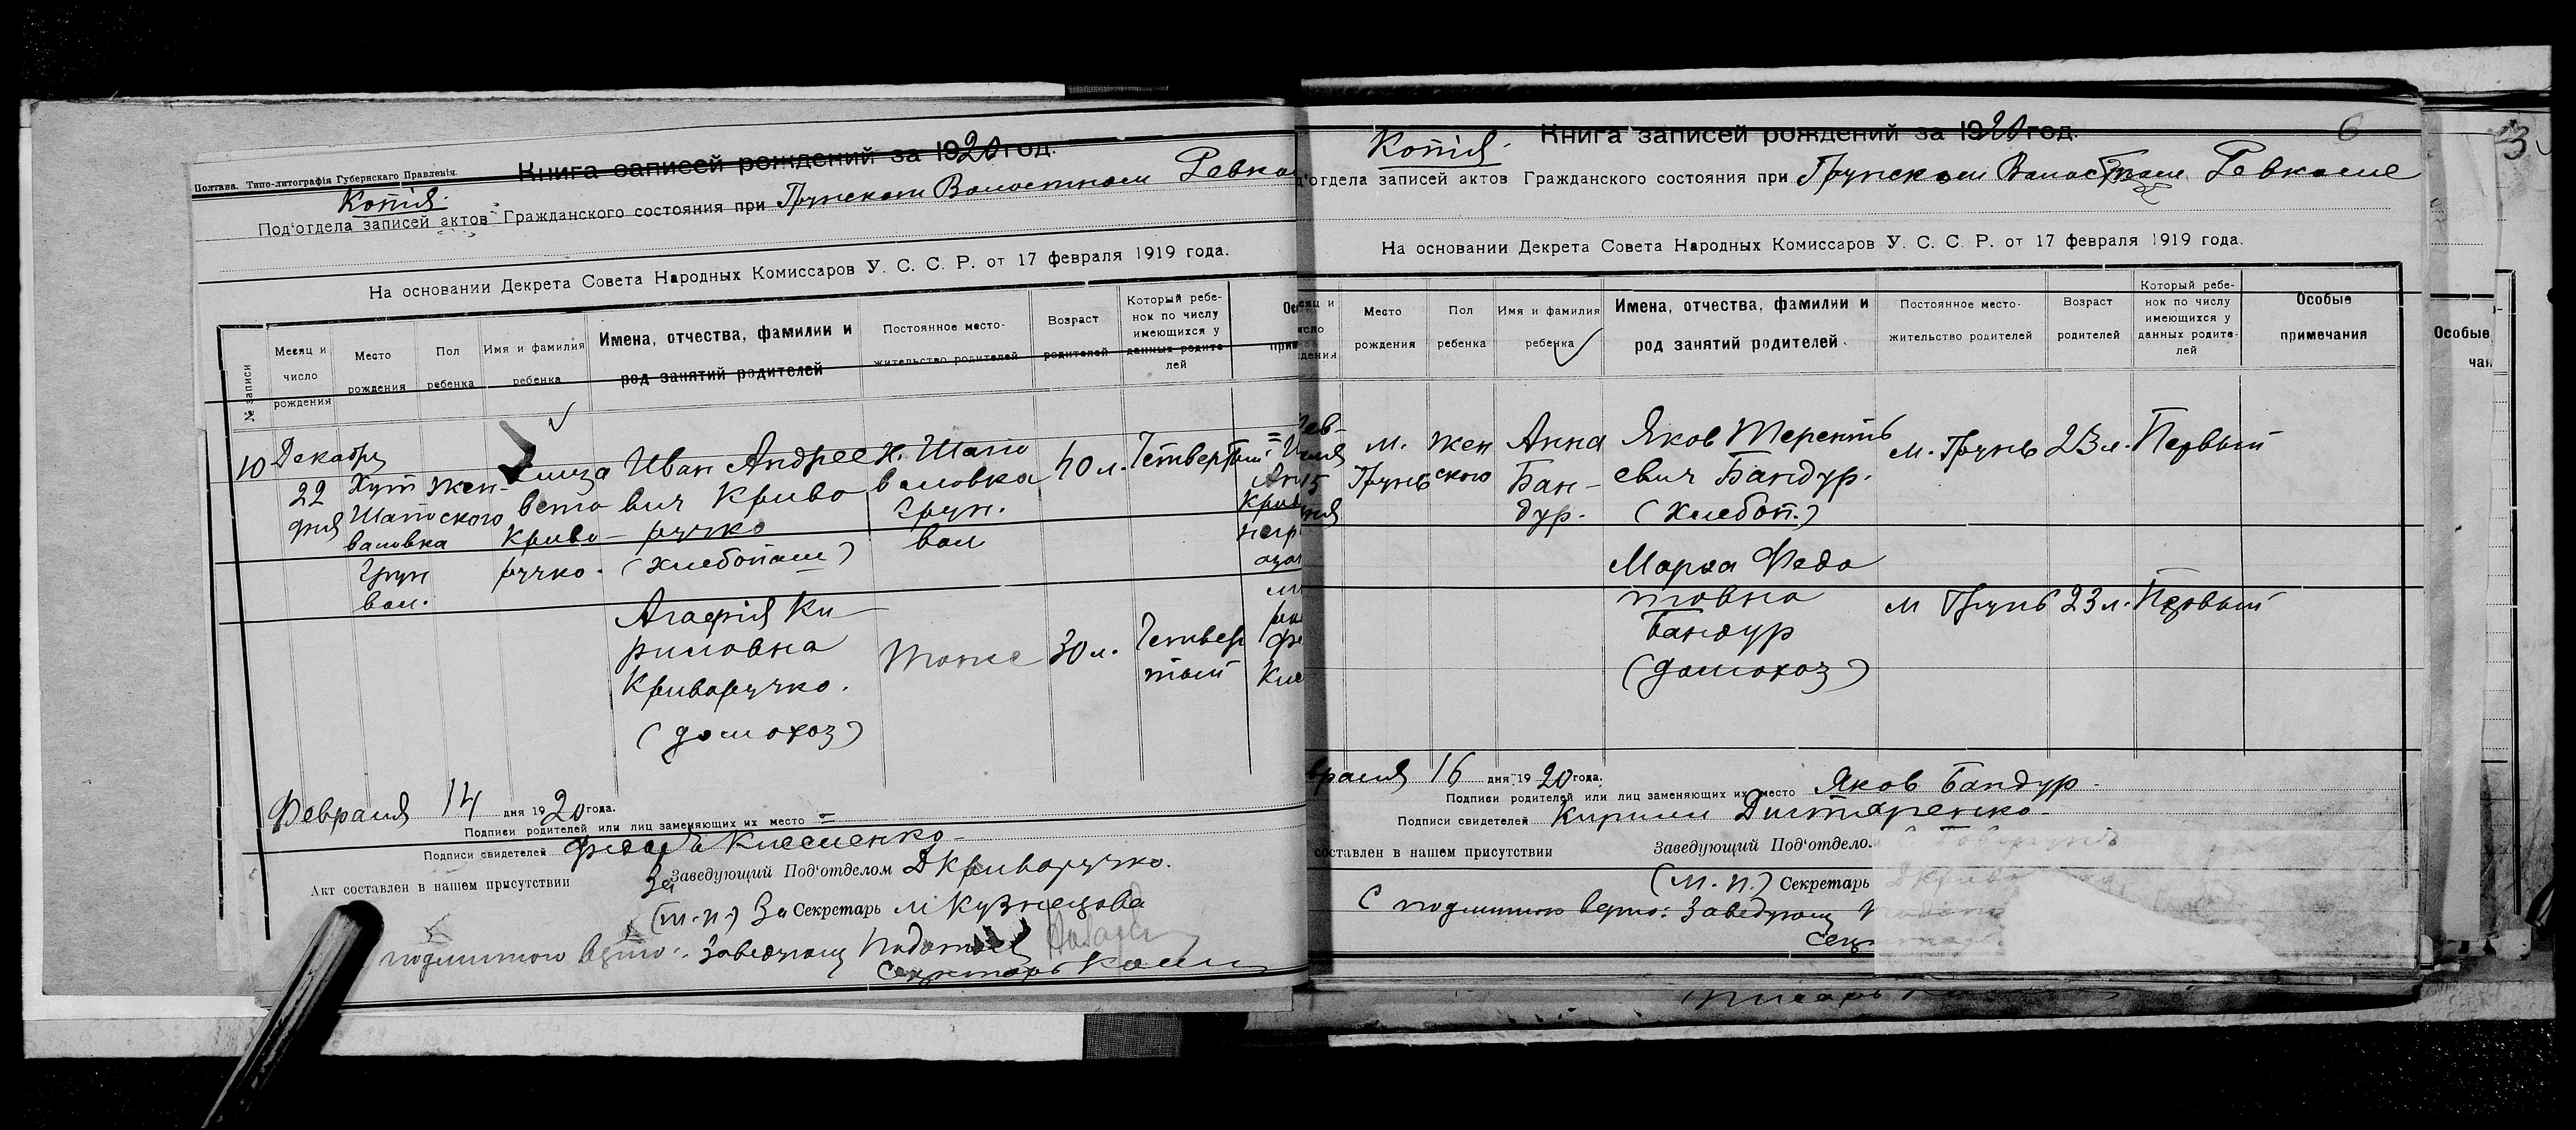 Книга записей рождений за 1920 год.
Полтава. Типо-литографія Губернскаго Правленія.
Копія.
Под'отдела записей актов Гражданского состояния при Грунском Волостном Ревко
На основании Декрета Совета Народных Комиссаров У. С. С. Р. от 17 февраля 1919 года.
№ записи
Месяц и число рождения
Место рождения
Пол ребенка
Имя и фамилия ребенка
Имена, отчества, фамилии и род занятий родителей
Постоянное место-жительство родителей
Возраст родителей
Который ребе-нок по числу имеющихся у данных родите-лей
10
Декабря
22
дня
Хут
Шапо
валовка
Грун
вол.
жен-
ского
Елиза
вета
Криво-
ручко.
Иван Андрее
вич Криво
ручко
(хлебопаш)
х. Шапо
валовка
Грун.
вол
40 л.
Четвертый
Агафія Ки
риловна
Криворучко.
(домохоз)
Тоже
30 л.
Четвер
тый
Февраля 14 дня 1920 года.
Подписи родителей или лиц заменяющих их место =
Подписи свидетелей Федосъ Клесленко
Акт составлен в нашем присутствии
За Заведующий Под'отделом Д Криворучко.
(м.п.) За Секретарь М Кузнецова
подлинною верно: Заведующ Подотдел
Секретарь
Книга записей рождений за 1920 год.
6
Копія.
д'отдела записей актов Гражданского состояния при Грунском Волостном Ревкоме
На основании Декрета Совета Народных Комиссаров У. С. С. Р. от 17 февраля 1919 года.
Место рождения
Пол ребенка
Имя и фамилия ребенка
Имена, отчества, фамилии и род занятий родителей
Постоянное место-жительство родителей
Возраст родителей
Который ребе-нок по числу имеющихся у данных родите-лей
Особые примечания
15
м.
Грунь
жен
ского
Анна
Бан-
дур.
Яков Теренть
евич Бандур.
(хлебоп.)
м. Грунь
23 л.
Первый
Марфа Федо
товна
Бандур
(домохоз)
м Грунь
23 л.
Первый
враля 16 дня 1920 года.
Подписи родителей или лиц заменяющих их место Яков Бандур.
Подписи свидетелей Кирилл Дигтяренко.
составлен в нашем присутствии
Заведующий Под'отдело
(м.п.) Секретарь
С подлинною верно: Заведующ
3
Особые